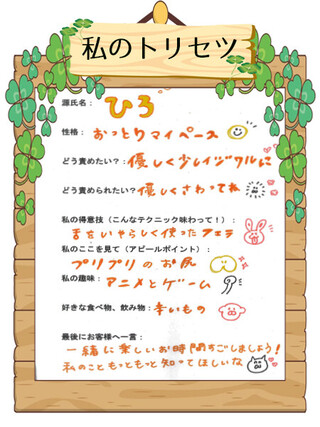 私のトリセツ
源氏名： ひろ
性格： おっとりマイペース
どう責めたい？： 優しく少しイジワルに
どう責められたい？： 優しくさわってね
私の得意技（こんなテクニック味わって！）：
舌をいやらしく使ったフェラ
私のここを見て（アピールポイント）：
プリプリのお尻
私の趣味： アニメとゲーム
好きな食べ物、飲み物： 辛いもの
最後にお客様へ一言：
一緒に楽しいお時間すごしましょう！
私のこともっともっと知ってほしいな